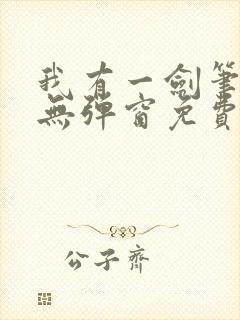 我有一劍筆
無彈窗免費
公子齊